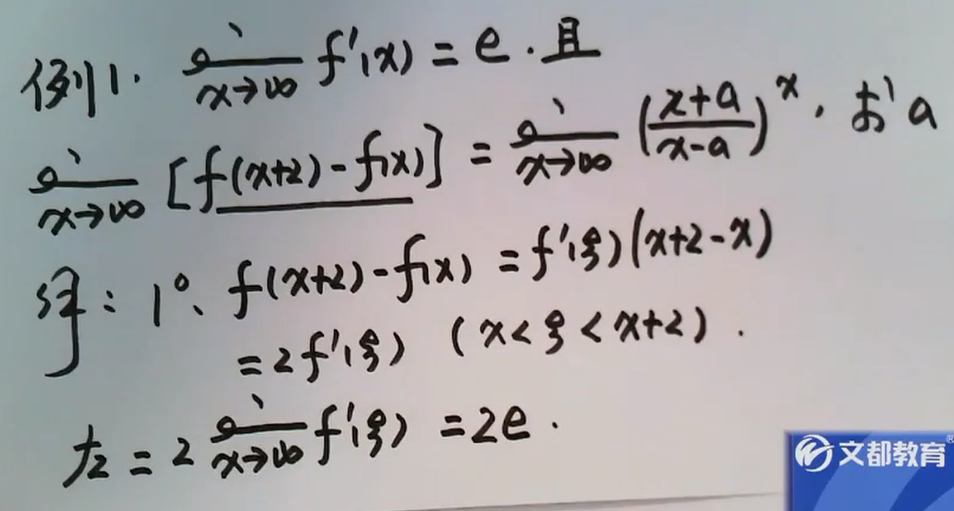 例1. lim x→∞ f'(x) = e. 且
lim x→∞ [f(x+2)-f(x)] = lim x→∞ (x+a/x-a)^x, 求a
解: 1°、f(x+2)-f(x) = f'(ξ)(x+2-x)
=2f'(ξ) (x<ξ<x+2).
左 = 2 lim x→∞ f'(ξ) =2e.
文都教育®